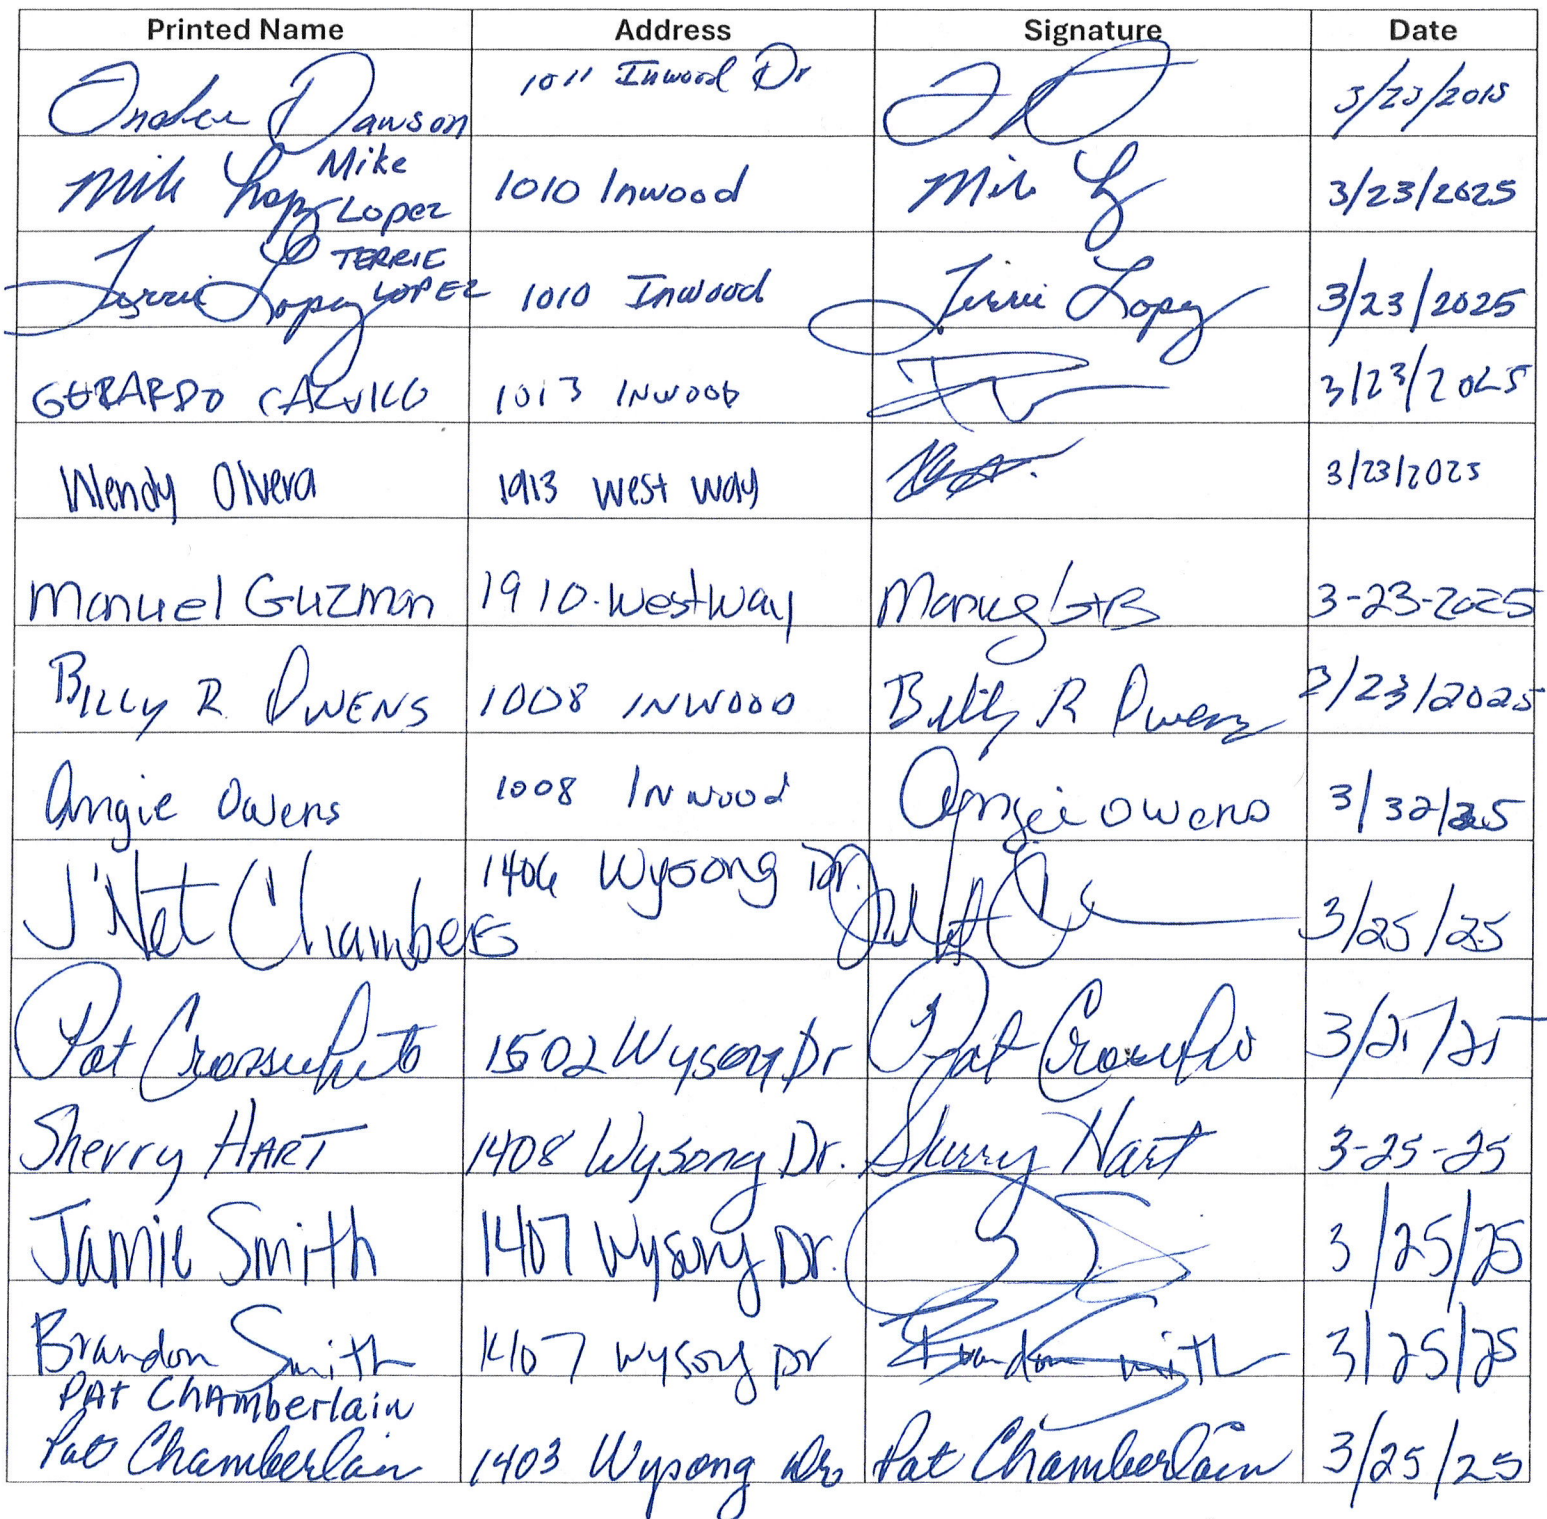 Printed Name Address Signature Date
Dawson 1011 Inwood Dr 3/23/2015
Mike Lopez Mike Lopez 1010 Inwood Mike 3/23/2025
Terrie Lopez TERRIE LOPEZ 1010 Inwood Terrie Lopez 3/23/2025
GERARDO CALVILLO 1013 INWOOD 3/23/2025
Wendy Olvera 1913 West Way 3/23/2025
Manuel Guzman 1910 Westway 3-23-2025
BILLY R OWENS 1008 INWOOD Billy R Owens 3/23/2025
Angie Owens 1008 INwood Angie Owens 3/32/25
J'Net Chambers 1406 Wysong Dr. 3/25/25
Pat 1502 Wysong Dr Pat 3/25/25
Sherry HART 1408 Wysong Dr. Sherry Hart 3-25-25
Jamie Smith 1407 Wysong Dr. 3/25/25
Brandon Smith 1407 Wysong Dr Brandon Smith 3/25/25
PAt ChAmberlain
Pat Chamberlain 1403 Wysong Dr Pat Chamberlain 3/25/25